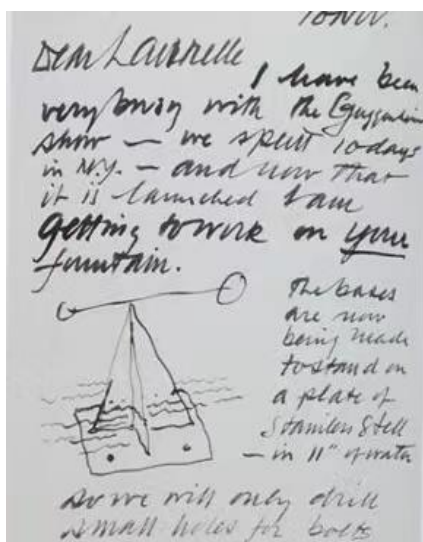 10 Nov.
Dear Laurrelle
I have been
very busy with the Guggenheim
show — we spent 10 days
in N.Y. — and now that
it is launched I am
getting to work on your
fountain.
The bases
are now
being made
to stand on
a plate of
Stainless Stell
— in 11" of water
so we will only drill
small holes for bolts